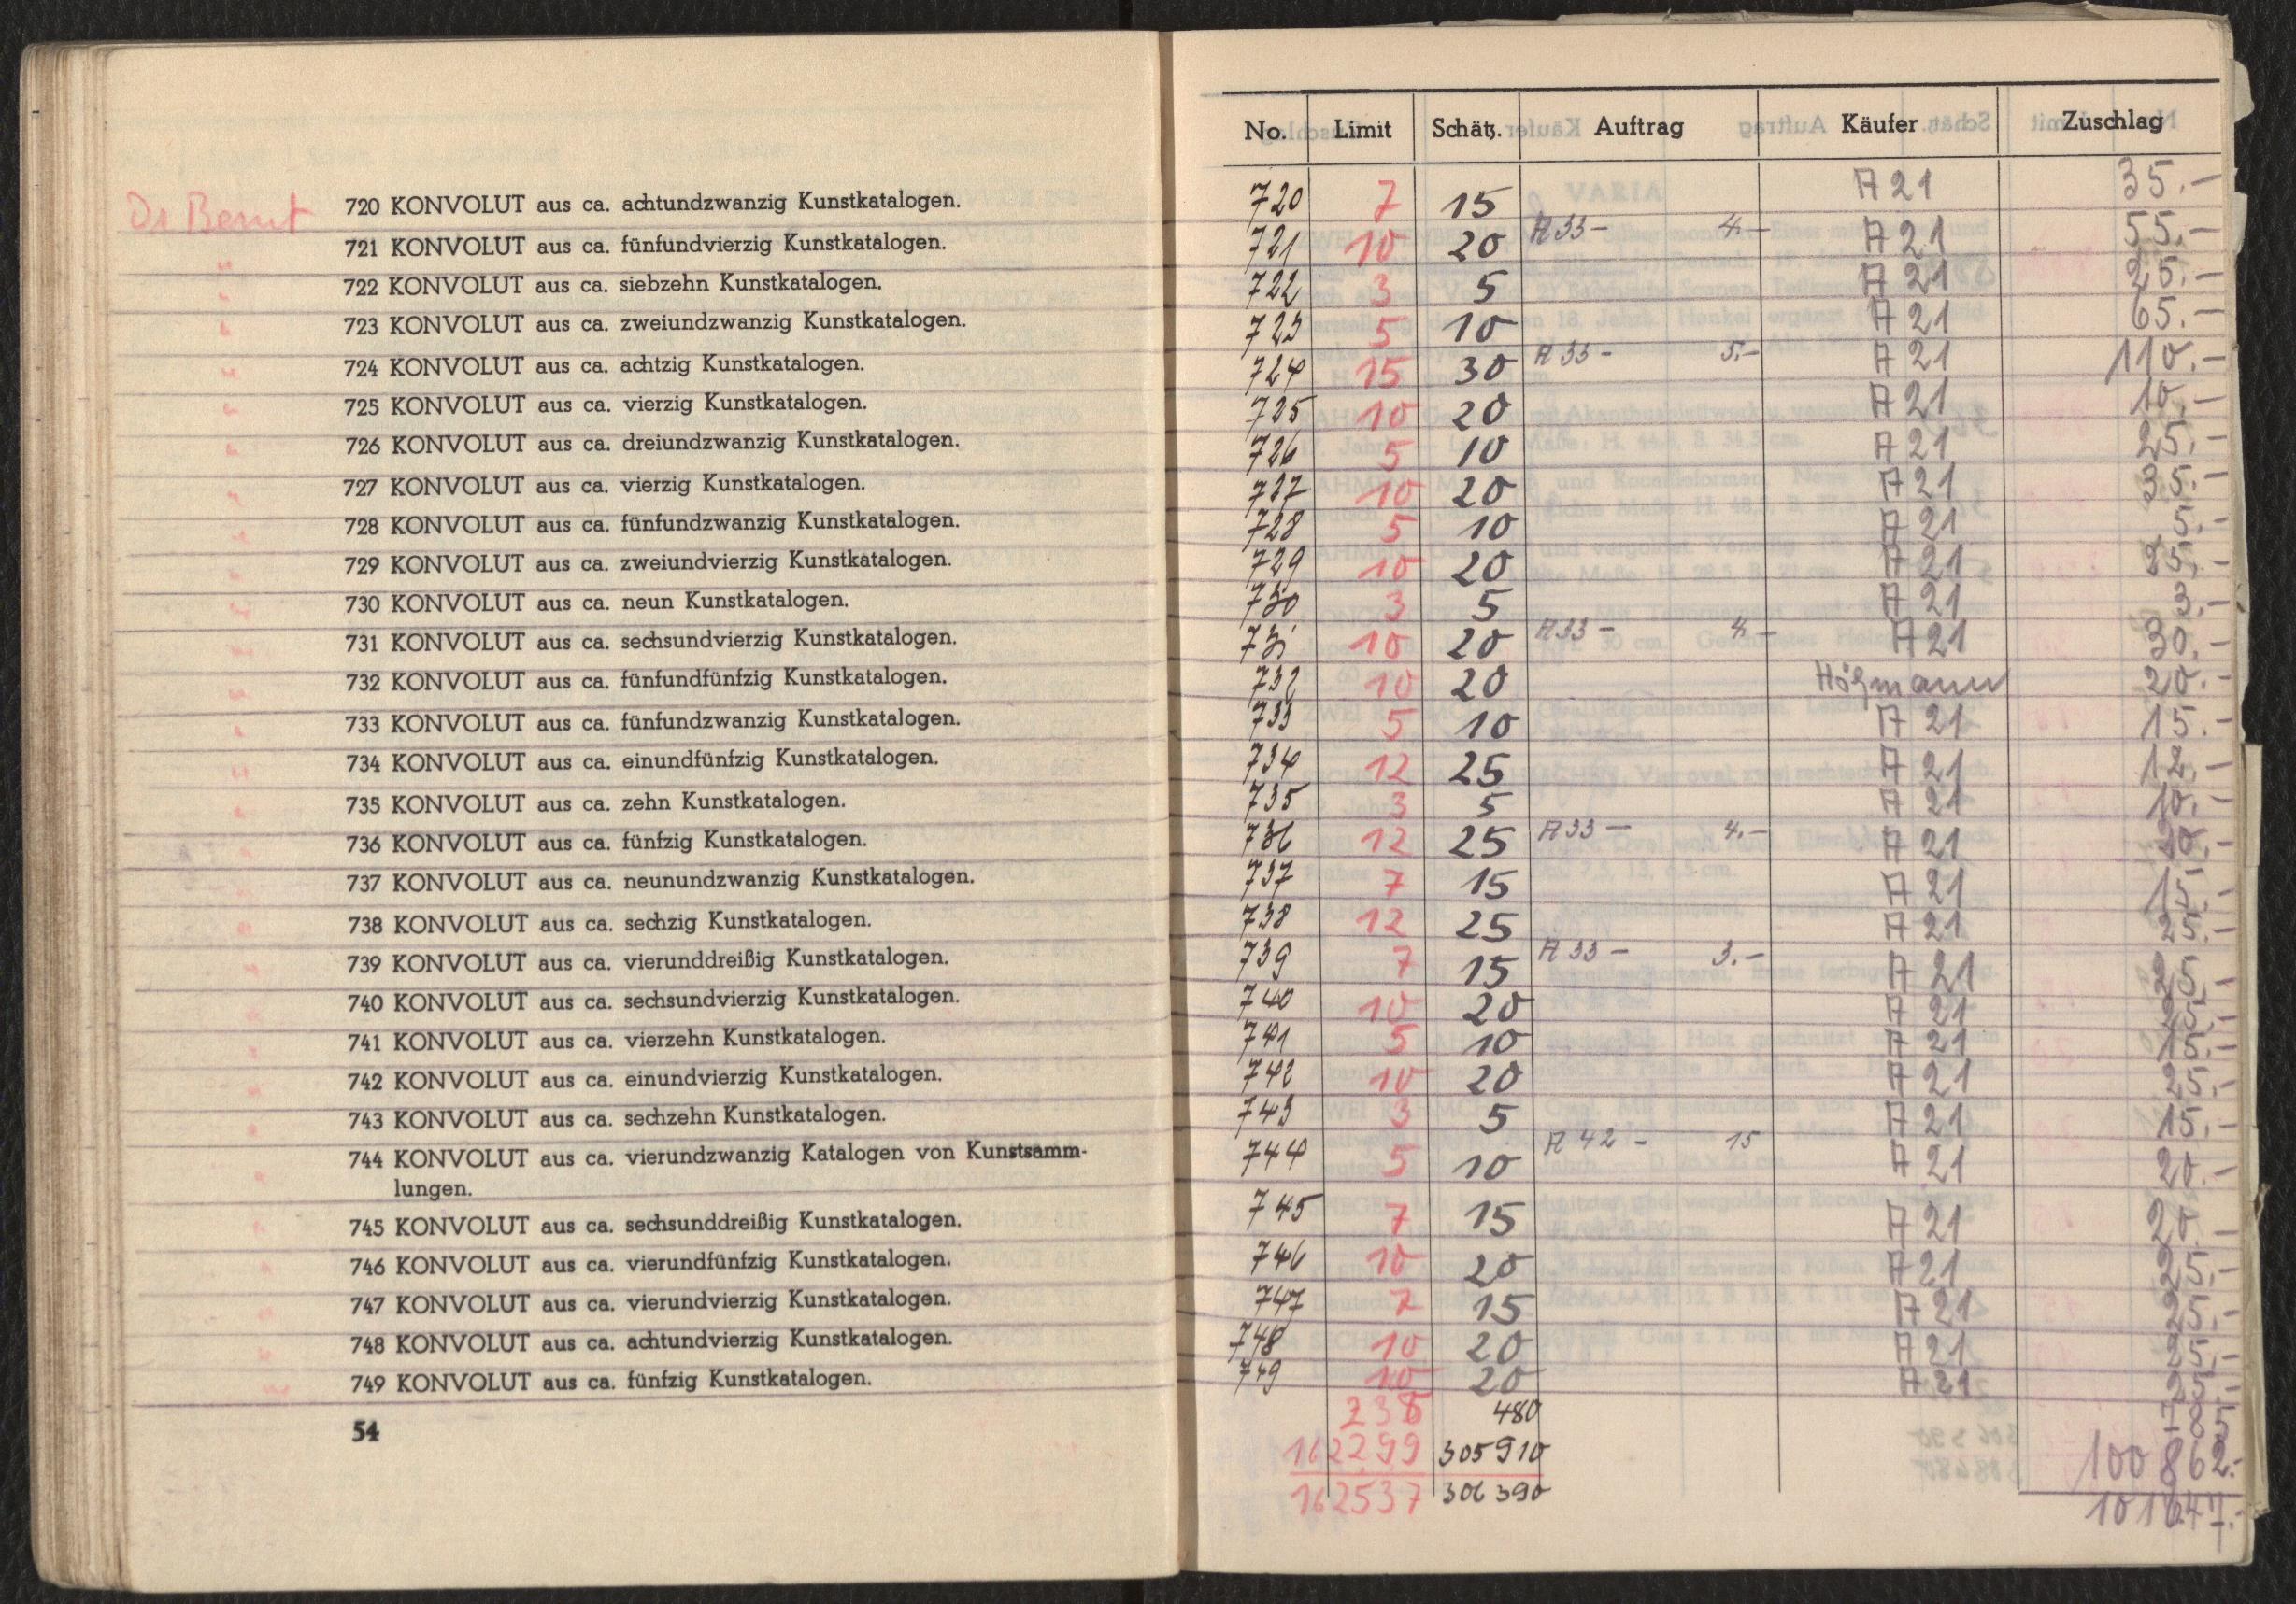 Dr Bernt
720 KONVOLUT aus ca. achtundzwanzig Kunstkatalogen.
" 721 KONVOLUT aus ca. fünfundvierzig Kunstkatalogen.
" 722 KONVOLUT aus ca. siebzehn Kunstkatalogen.
" 723 KONVOLUT aus ca. zweiundzwanzig Kunstkatalogen.
" 724 KONVOLUT aus ca. achtzig Kunstkatalogen.
" 725 KONVOLUT aus ca. vierzig Kunstkatalogen.
" 726 KONVOLUT aus ca. dreiundzwanzig Kunstkatalogen.
" 727 KONVOLUT aus ca. vierzig Kunstkatalogen.
" 728 KONVOLUT aus ca. fünfundzwanzig Kunstkatalogen.
" 729 KONVOLUT aus ca. zweiundvierzig Kunstkatalogen.
" 730 KONVOLUT aus ca. neun Kunstkatalogen.
" 731 KONVOLUT aus ca. sechsundvierzig Kunstkatalogen.
" 732 KONVOLUT aus ca. fünfundfünfzig Kunstkatalogen.
" 733 KONVOLUT aus ca. fünfundzwanzig Kunstkatalogen.
" 734 KONVOLUT aus ca. einundfünfzig Kunstkatalogen.
" 735 KONVOLUT aus ca. zehn Kunstkatalogen.
" 736 KONVOLUT aus ca. fünfzig Kunstkatalogen.
" 737 KONVOLUT aus ca. neunundzwanzig Kunstkatalogen.
" 738 KONVOLUT aus ca. sechzig Kunstkatalogen.
" 739 KONVOLUT aus ca. vierunddreißig Kunstkatalogen.
" 740 KONVOLUT aus ca. sechsundvierzig Kunstkatalogen.
" 741 KONVOLUT aus ca. vierzehn Kunstkatalogen.
" 742 KONVOLUT aus ca. einundvierzig Kunstkatalogen.
" 743 KONVOLUT aus ca. sechzehn Kunstkatalogen.
" 744 KONVOLUT aus ca. vierundzwanzig Katalogen von Kunstsamm-
lungen.
" 745 KONVOLUT aus ca. sechsunddreißig Kunstkatalogen.
" 746 KONVOLUT aus ca. vierundfünfzig Kunstkatalogen.
" 747 KONVOLUT aus ca. vierundvierzig Kunstkatalogen.
" 748 KONVOLUT aus ca. achtundvierzig Kunstkatalogen.
" 749 KONVOLUT aus ca. fünfzig Kunstkatalogen.
54
No. Limit Schätz. Auftrag Käufer Zuschlag
720 7 15 A 21 35.-
721 10 20 A 33 - 4.- A 21 55.-
722 3 5 A 21 25.-
723 5 10 A 21 65.-
724 15 30 A 33 - 5.- A 21 110.-
725 10 20 A 21 10.-
726 5 10 A 21 25.-
727 10 20 A 21 35.-
728 5 10 A 21 5.-
729 10 20 A 21 25.-
730 3 5 A 21 3.-
731 10 20 A 33 - 4.- A 21 30.-
732 10 20 20.-
733 5 10 A 21 15.-
734 12 25 A 21 12.-
735 3 5 A 21 10.-
736 12 25 A 33 - 4.- A 21 20.-
737 7 15 A 21 15.-
738 12 25 A 21 25.-
739 7 15 A 33 - 3.- A 21 25.-
740 10 20 A 21 25.-
741 5 10 A 21 15.-
742 10 20 A 21 25.-
743 3 5 A 21 15.-
744 5 10 A 42 - 15 A 21 20.-
745 7 15 A 21 20.-
746 10 20 A 21 25.-
747 7 15 A 21 25.-
748 10 20 A 21 25.-
749 10 20 A 21 25.-
238 480 785
162299 305910 100862.-
162537 306390 101647.-